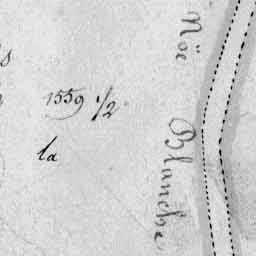 1559 1/2
la
Noë Blanche